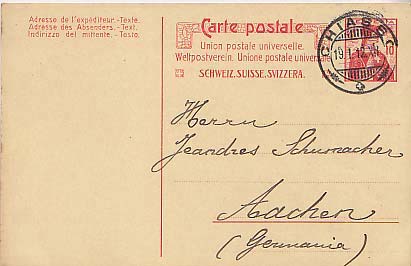 Adresse de l'expéditeur.-Texte.
Adresse des Absenders.-Text.
Indirizzo del mittente.- Testo.
Carte postale
Union postale universelle.
Weltpostverein. Unione postale universale
SCHWEIZ. SUISSE. SVIZZERA.
CHIASSO
19.I.12
10
Herrn
Jeandres Schumacher
Aachen
(Germania)